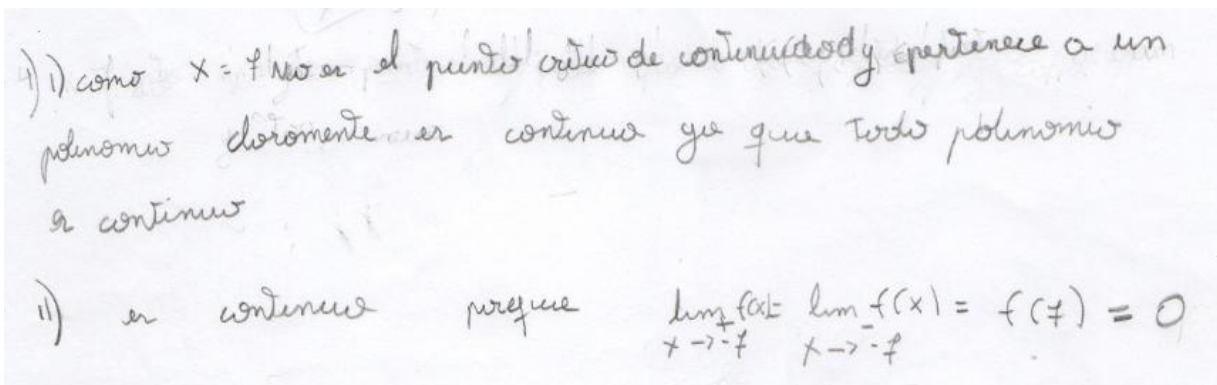 4) i) como x = 7 No es el punto critico de continuidad y pertenece a un
polinomio claramente es continua ya que todo polinomio
es continuo
ii) es continua porque lim f(x) = lim f(x) = f(7) = 0
x -> -7⁺ x -> -7⁻